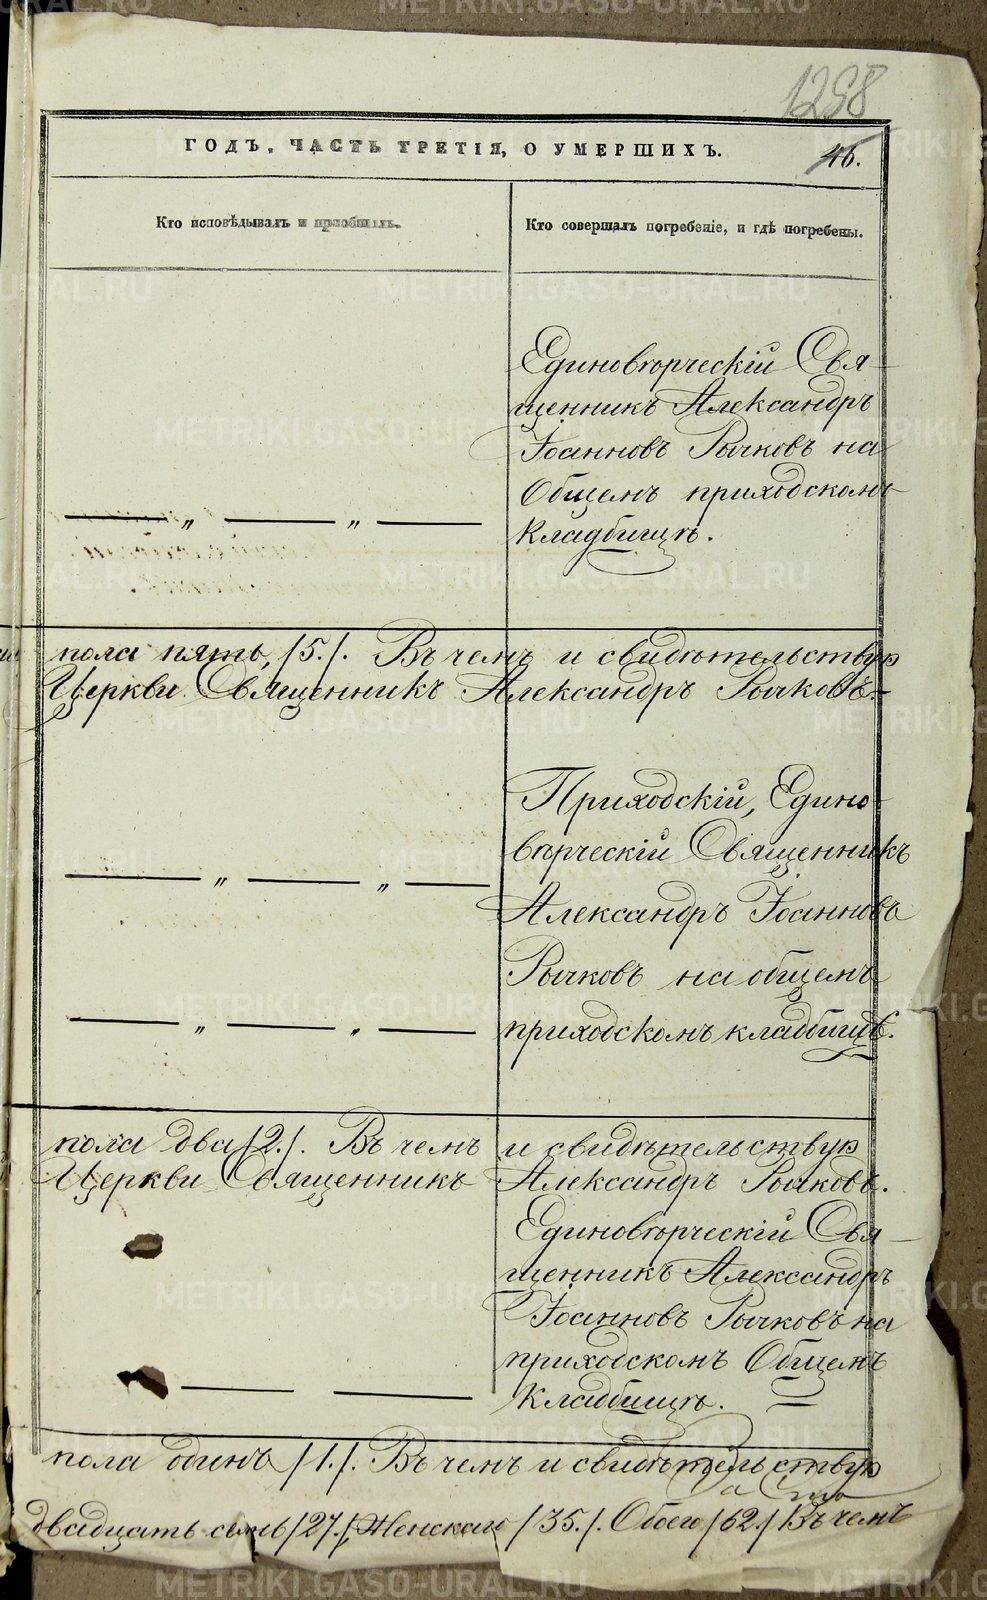 1258
ГОДЪ, ЧАСТЬ ТРЕТІЯ, О УМЕРШИХЪ.
46.
Кто исповѣдывалъ и пріобщалъ.
Кто совершалъ погребеніе, и гдѣ погребены.
Единовѣрческій Свя-
щенникъ Александръ
Іоанновъ Рычковъ на
Общемъ приходскомъ
кладбищѣ.
— „ — „ —
пола пять, /5./. Въ чемъ и свидѣтельствую
Церкви Священникъ Александръ Рычковъ.-
Приходскій, Едино-
вѣрческій Священникъ
— „ — „ —
Александръ Іоанновъ
Рычковъ на общемъ
— „ — „ — приходскомъ кладбищѣ.
пола два /2./. Въ чемъ и свидѣтельствую
Церкви Священникъ Александръ Рычковъ.
Единовѣрческій Свя-
щенникъ Александръ
Іоанновъ Рычковъ на
приходскомъ Общемъ
— — кладбищѣ.
пола одинъ /1./. Въ чемъ и свидѣтельствую
двадцать семь /27./, Женскаго /35./. Обоего /62./ Въ чемъ
METRIKI.GASO-URAL.RU